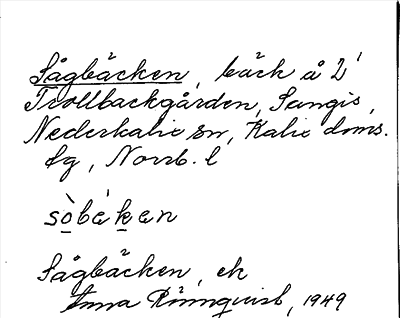 Sågbäcken, bäck å 2'
Trollbackgården, Sangis,
Nederkalix sn, Kalix doms.
dg, Norrb. l
sòbákan
Sågbäcken, ek
Anna Rönnquist, 1949